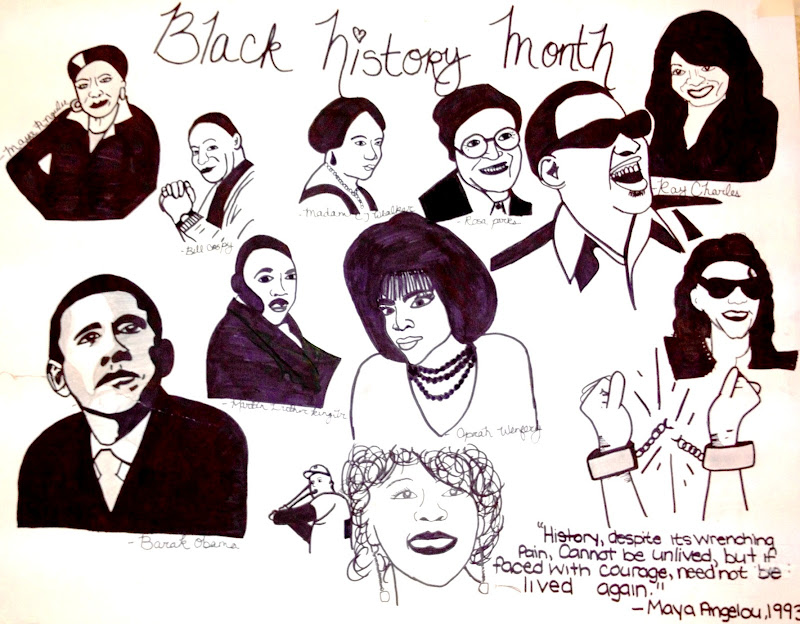 Black History Month
-Maya Angelou
-Bill Cosby
-Madam CJ Walker
-Rosa parks
-Ray Charles
-Martin Luther king Jr
-Oprah Wenfery
-Barak Obama
"History, despite its wrenching
Pain, Cannot be unlived, but if
faced with courage, need not be
lived again."
-Maya Angelou, 1993